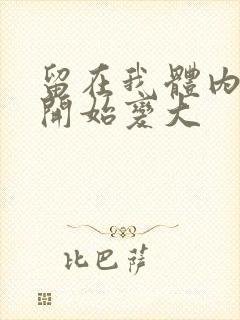 留在我體內
開始變大
比巴薩